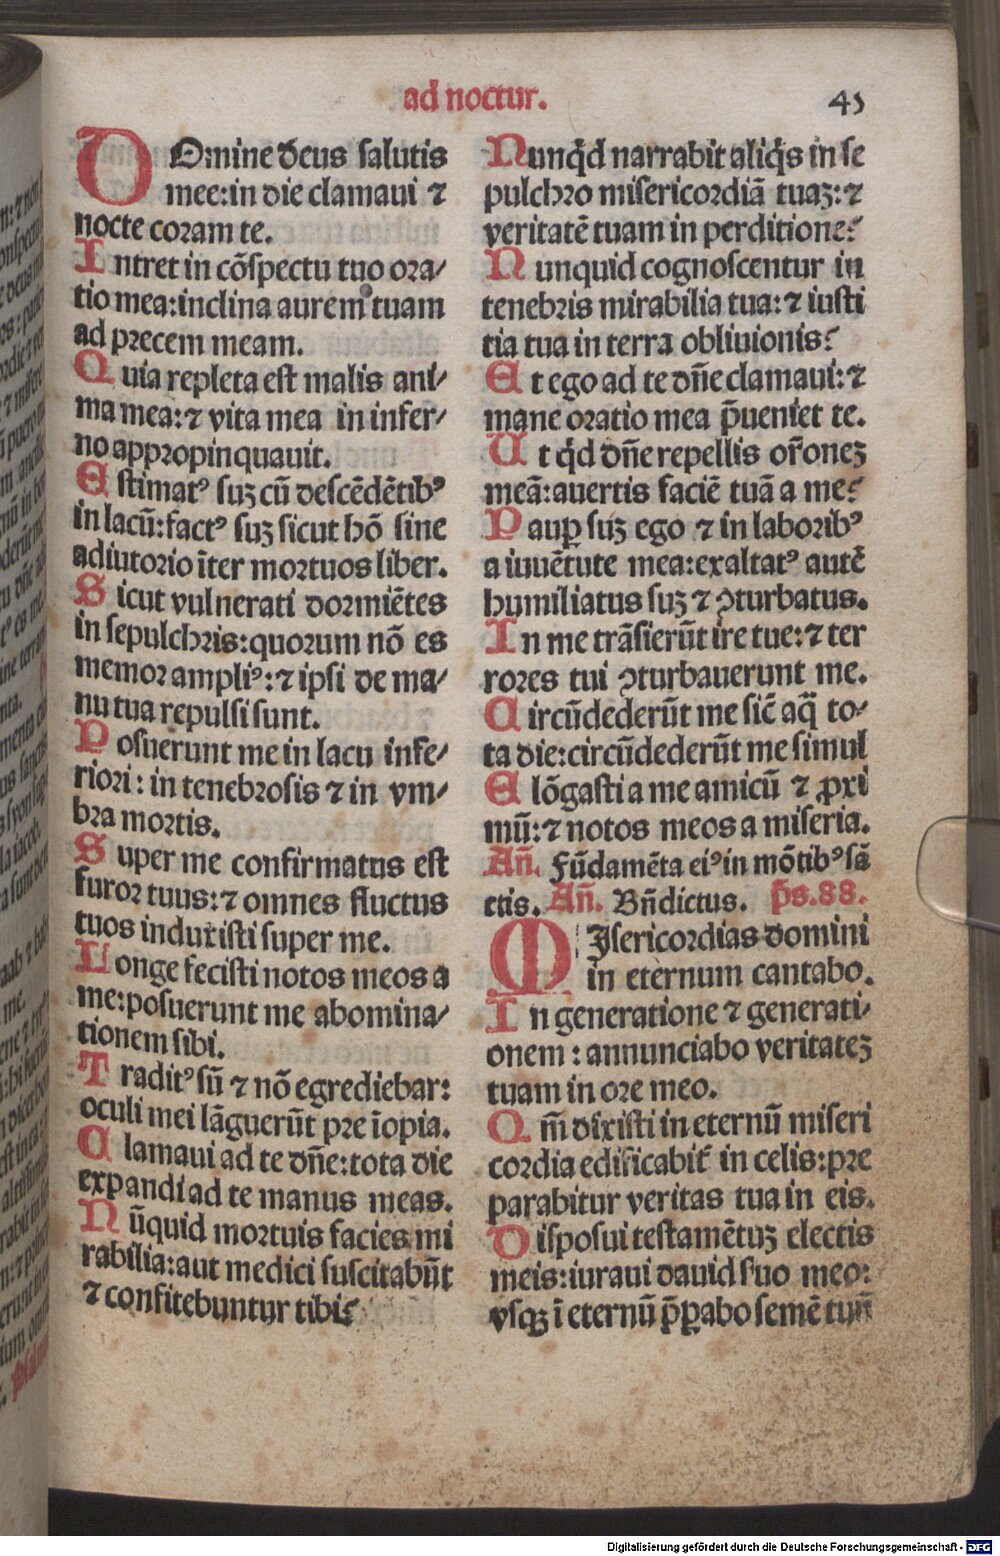 ad noctur.
45
DOmine deus salutis
mee:in die clamaui ⁊
nocte coram te.
Intret in cōspectu tuo ora/
tio mea:inclina aurem tuam
ad precem meam.
Quia repleta est malis ani/
ma mea:⁊ vita mea in infer/
no appropinquauit.
Estimatꝰ suꝫ cū descēdētibꝰ
in lacū:factꝰ suꝫ sicut hō sine
adiutorio īter mortuos liber.
Sicut vulnerati dormiētes
in sepulchris:quorum nō es
memor ampliꝰ:⁊ ipsi de ma/
nu tua repulsi sunt.
Posuerunt me in lacu infe/
riori: in tenebrosis ⁊ in vm/
bra mortis.
Super me confirmatus est
furor tuus:⁊ omnes fluctus
tuos induxisti super me.
Longe fecisti notos meos a
me:posuerunt me abomina/
tionem sibi.
Traditꝰ sū ⁊ nō egrediebar:
oculi mei lāguerūt pre īopia.
Clamaui ad te dn̄e:tota die
expandi ad te manus meas.
Nūquid mortuis facies mi
rabilia:aut medici suscitabūt
⁊ confitebuntur tibi?
Nunq̄d narrabit aliq̄s in se
pulchro misericordiā tuaꝫ:⁊
veritatē tuam in perditione?
Nunquid cognoscentur in
tenebris mirabilia tua:⁊ iusti
tia tua in terra obliuionis?
Et ego ad te dn̄e clamaui:⁊
mane oratio mea p̄ueniet te.
Ut q̄d dn̄e repellis or̄oneꝫ
meā:auertis faciē tuā a me?
Paup̱ suꝫ ego ⁊ in laboribꝰ
a iuuētute mea:exaltatꝰ autē
humiliatus suꝫ ⁊ ꝯturbatus.
In me trāsierūt ire tue:⁊ ter
rores tui ꝯturbauerunt me.
Circūdederūt me sic̄ aq̄ to/
ta die:circūdederūt me simul
Elōgasti a me amicū ⁊ ꝓxi
mū:⁊ notos meos a miseria.
An̄. Fūdamēta eiꝰ in mōtibꝰ sā
ctis. An̄. Bn̄dictus. p̄s.88.
MIsericordias domini
in eternum cantabo.
In generatione ⁊ generati/
onem: annunciabo veritateꝫ
tuam in ore meo.
Qm̄ dixisti in eternū miseri
cordia edificabit̄ in celis:pre
parabitur veritas tua in eis.
Disposui testamētuꝫ electis
meis:iuraui dauid suo meo:
vsqꝫ ī eternū p̄ꝑabo semē tuū
Digitalisierung gefördert durch die Deutsche Forschungsgemeinschaft -
DFG